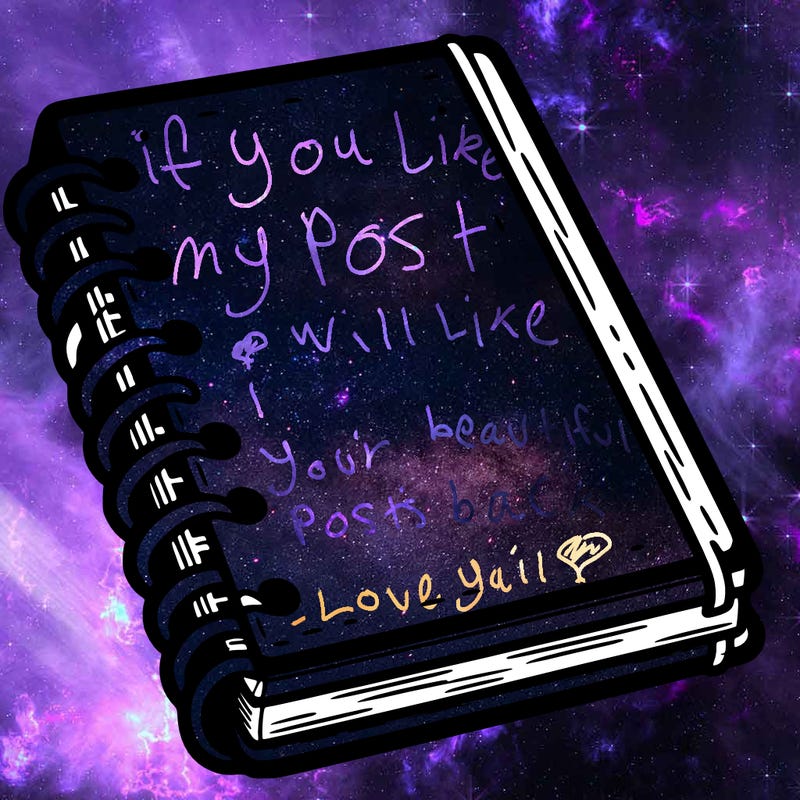 if you Like
my Post
i will Like
your beautiful
posts back
- Love yail